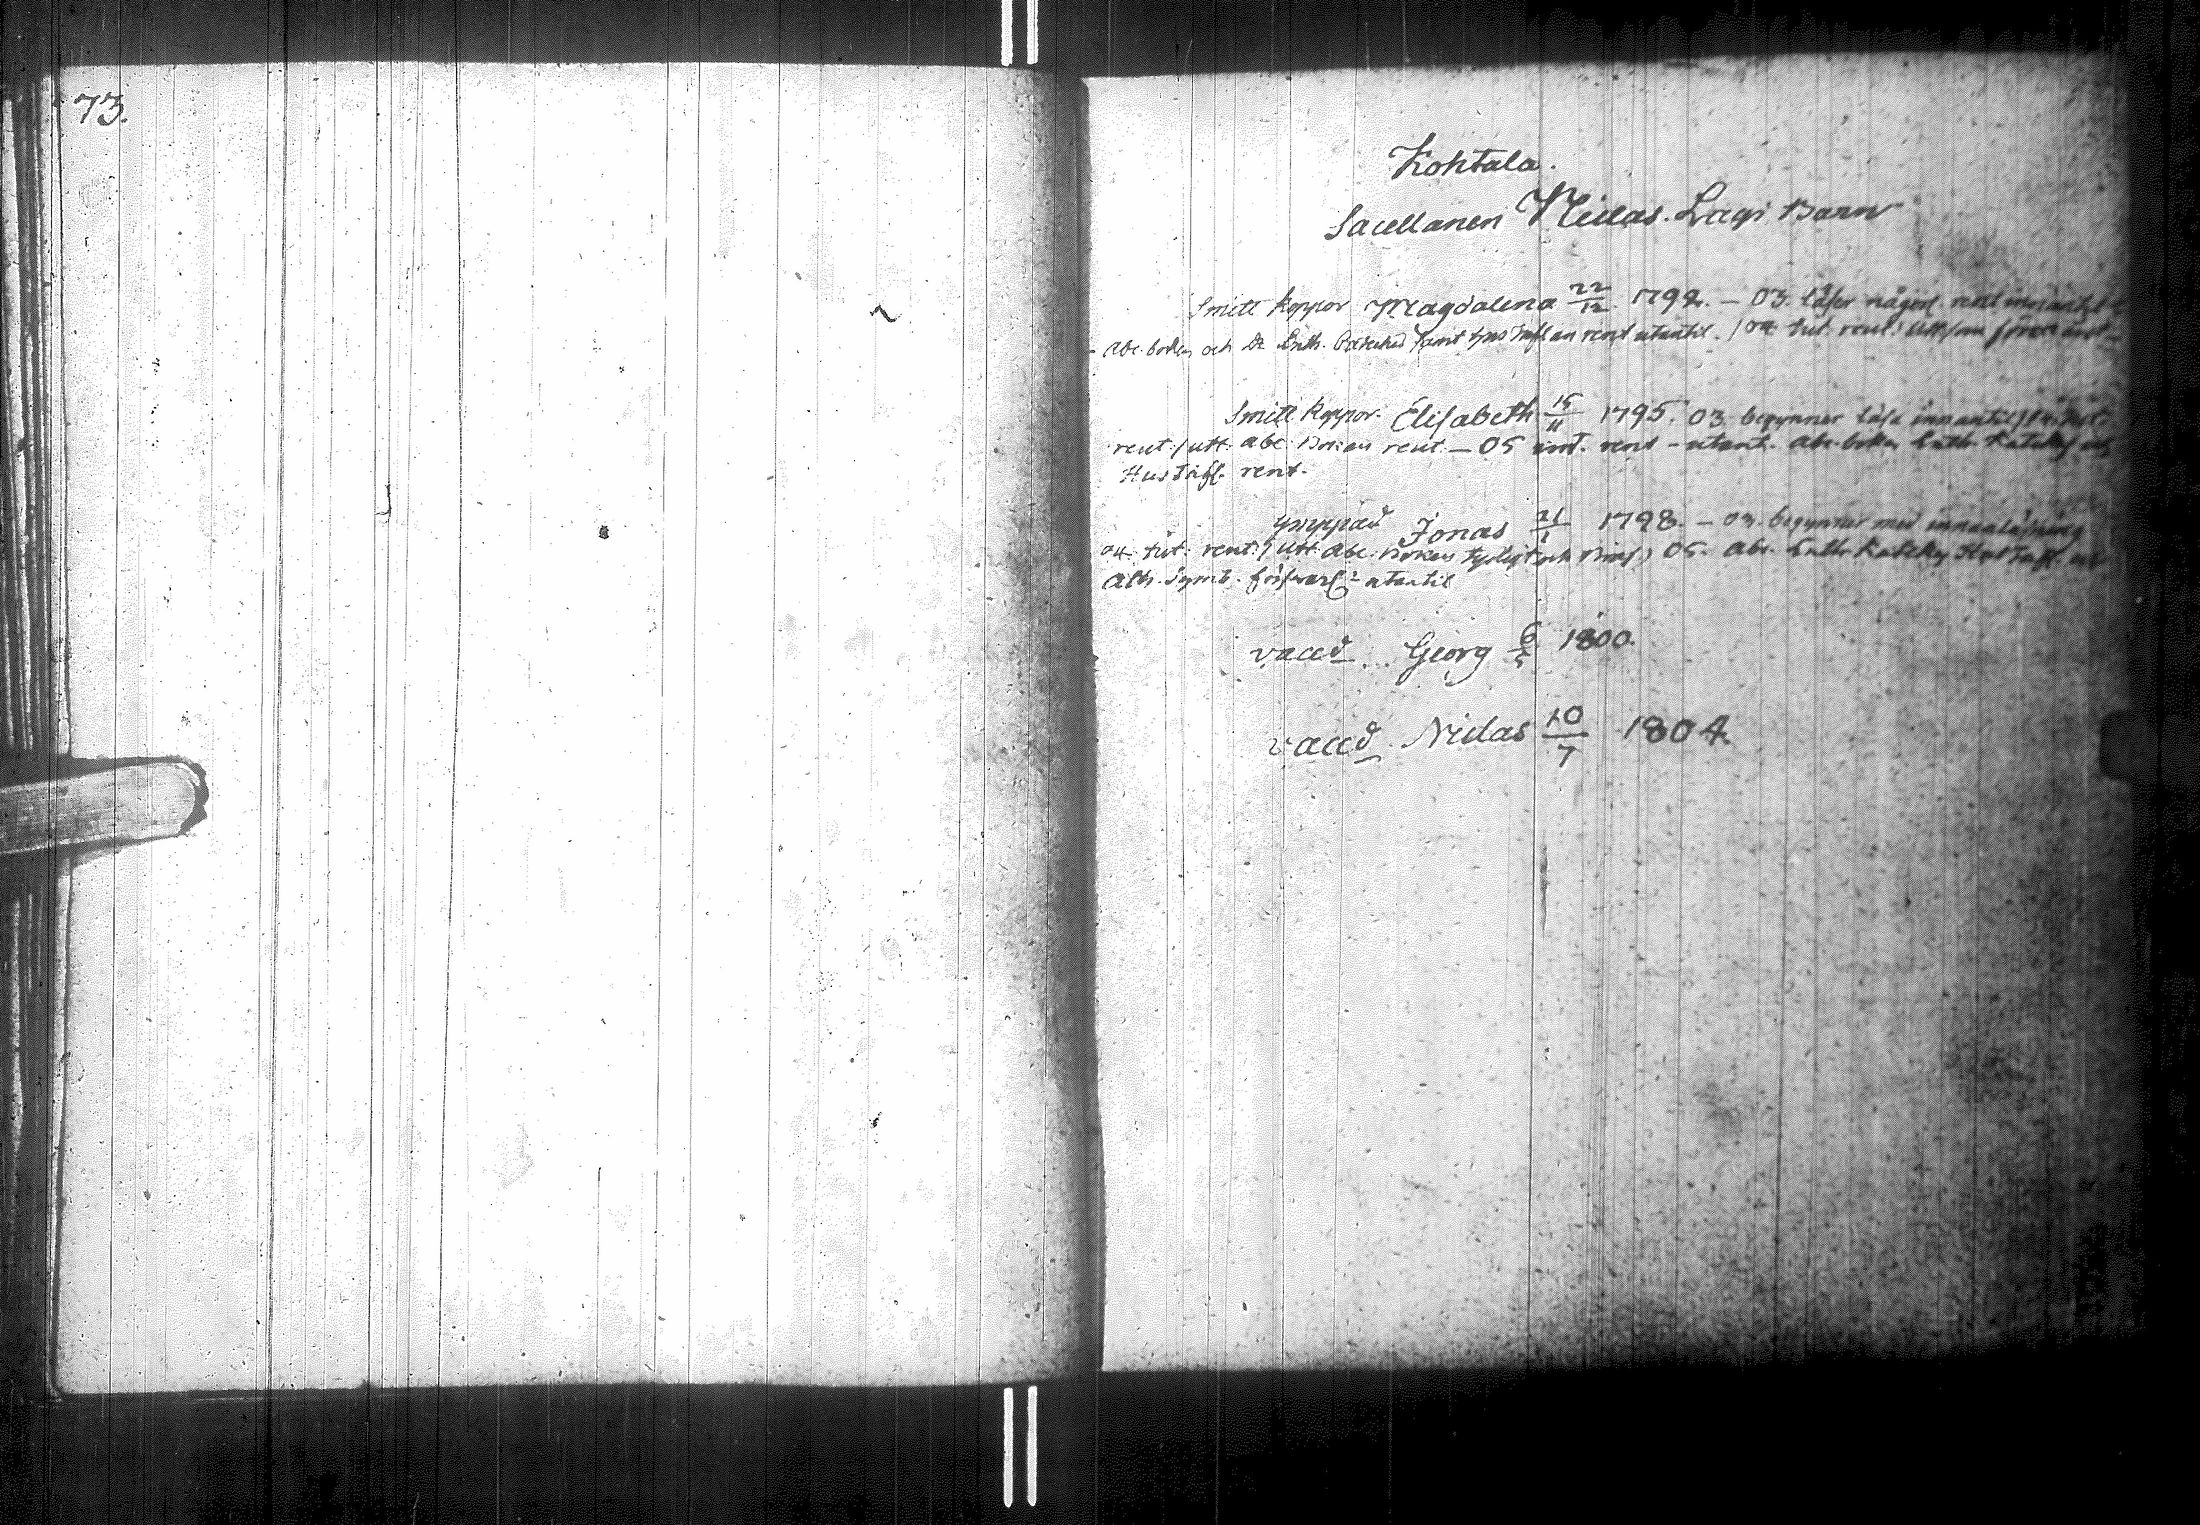 73.
Kohtala.
Sacellanen Niclas Lagi Barn
Smitt koppor Magdalena 22/12 1794. — 03. läser någorl. rent innantil
abc. boken och Dr Luth. Cateches samt hus Taflan rent utantil. / 04 tut. rent
Smitt koppor. Elisabeth 15/11 1795. 03 begynner läsa innantil
rent / utt. abc Boken rent — 05 int. rent - utant. abc-boken Luth. Kateches och
Hustafl. rent.
ymppad Jonas 21/1 1798. — 03. begynner med innanläsning
04. tut. rent / utt. abc. boken tydligt och 05. abc. Luth. Kateches Hustafl.
Ath. Symb. försvarl: utantil
vacc.d Georg 6/5 1800.
vacc.d Niclas 10/7 1804